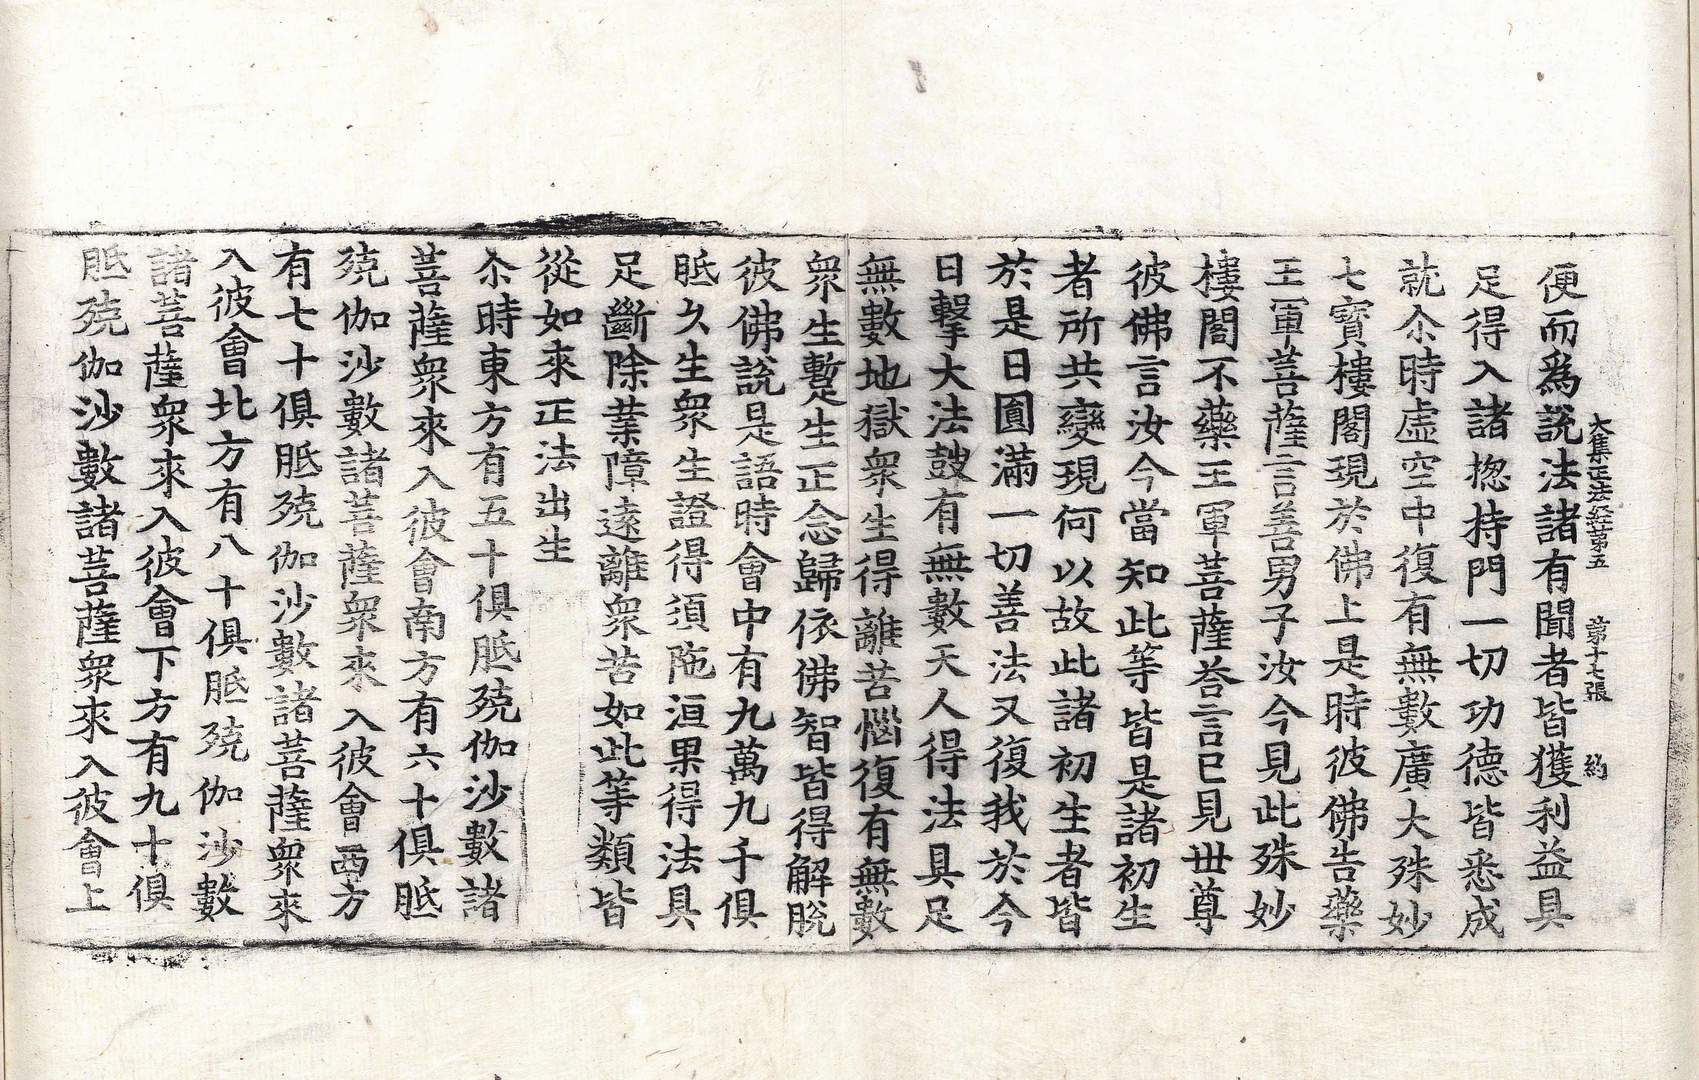 大集正法經第五　第十七張　約
便而爲說法諸有聞者皆獲利益具
足得入諸揔持門一切功德皆悉成
就尒時虛空中復有無數廣大殊妙
七寶樓閣現於佛上是時彼佛告藥
王軍菩薩言善男子汝今見此殊妙
樓閣不藥王軍菩薩荅言已見世尊
彼佛言汝今當知此等皆是諸初生
者所共變現何以故此諸初生者皆
於是日圓滿一切善法又復我於今
日擊大法鼓有無數天人得法具足
無數地獄衆生得離苦惱復有無數
衆生暫生正念歸依佛智皆得解脫
彼佛說是語時會中有九萬九千俱
胝久生衆生證得須陁洹果得法具
足斷除業障遠離衆苦如此等類皆
從如來正法出生
尒時東方有五十俱胝殑伽沙數諸
菩薩衆來入彼會南方有六十俱胝
殑伽沙數諸菩薩衆來入彼會西方
有七十俱胝殑伽沙數諸菩薩衆來
入彼會北方有八十俱胝殑伽沙數
諸菩薩衆來入彼會下方有九十俱
胝殑伽沙數諸菩薩衆來入彼會上